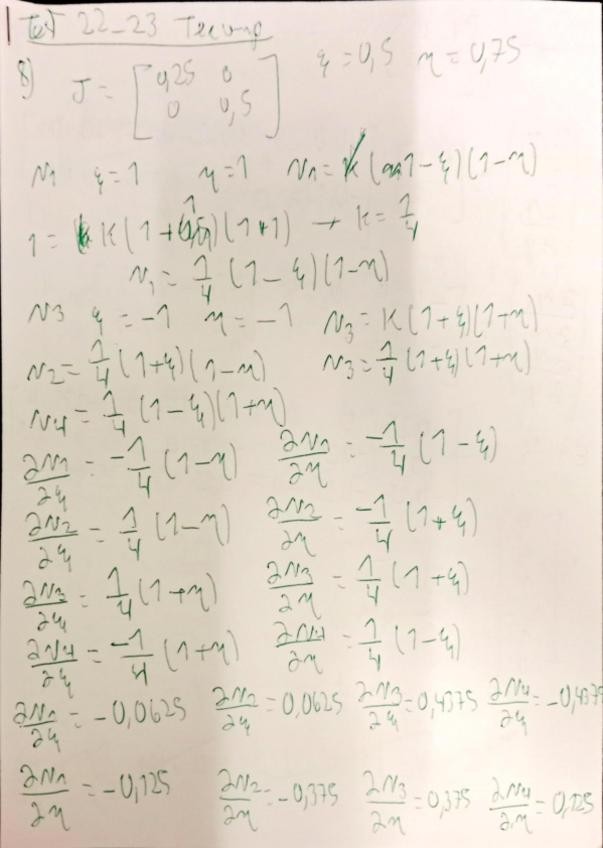 Test 22-23
8) J = [0,25 0 ξ = 0,5 η = 0,75
0 0,5]
N1 ξ = 1 η = 1 N1 = K (1-ξ)(1-η)
1 = K(1+1)(1+1) → K = 1/4
N1 = 1/4 (1-ξ)(1-η)
N3 ξ = -1 η = -1 N3 = K(1+ξ)(1+η)
N2 = 1/4 (1+ξ)(1-η) N3 = 1/4 (1+ξ)(1+η)
N4 = 1/4 (1-ξ)(1+η)
∂N1/∂ξ = -1/4 (1-η) ∂N1/∂η = -1/4 (1-ξ)
∂N2/∂ξ = 1/4 (1-η) ∂N2/∂η = -1/4 (1+ξ)
∂N3/∂ξ = 1/4 (1+η) ∂N3/∂η = 1/4 (1+ξ)
∂N4/∂ξ = -1/4 (1+η) ∂N4/∂η = 1/4 (1-ξ)
∂N1/∂ξ = -0,0625 ∂N2/∂ξ = 0,0625 ∂N3/∂ξ = 0,4375 ∂N4/∂ξ = -0,4375
∂N1/∂η = -0,125 ∂N2/∂η = -0,375 ∂N3/∂η = 0,375 ∂N4/∂η = 0,125